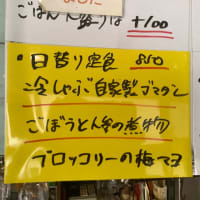 ごはん大盛りは +100
・日替り定食 850
冷しゃぶ自家製ゴマダレ
ごぼうと牛の煮物
ブロッコリーの梅マヨ